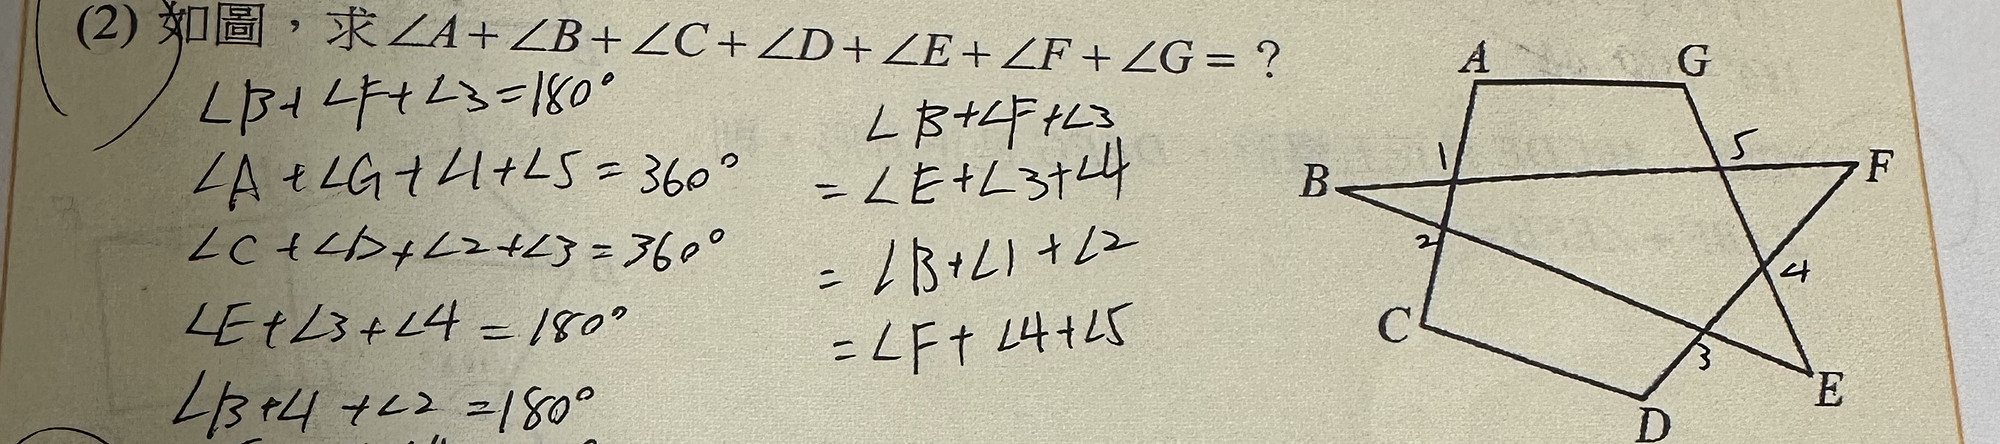 (2) 如圖，求∠A+∠B+∠C+∠D+∠E+∠F+∠G=？
∠B+∠F+∠3=180°
∠A+∠G+∠1+∠5=360°
∠C+∠D+∠2+∠3=360°
∠E+∠3+∠4=180°
∠B+∠1+∠2=180°
∠B+∠F+∠3
=∠E+∠3+∠4
=∠B+∠1+∠2
=∠F+∠4+∠5
A G
1 5
B F
2 4
C 3
E
D